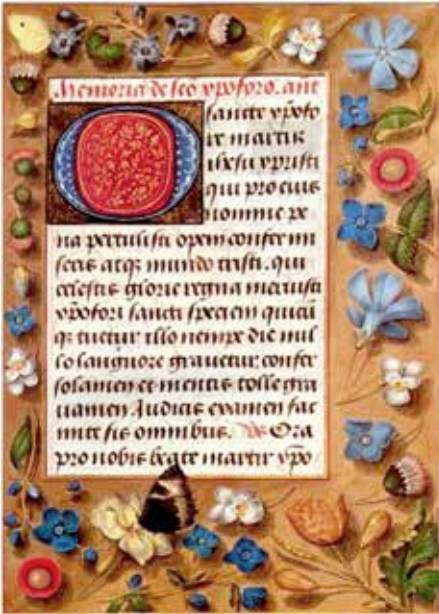 Memoria de sco xpoforo. ant
O sancte xpofo
re martir
ihesu xpristi
qui pro eius
nomine pe
na pertulisti opem confer mi
seris atq mundo tristi. qui
celestis glorie regna meruisti
xpofori sancti speciem quicū
q tuetur illo nempe die nul
lo languore gravetur confer
solamen et mentis tolle gra
uamen Judicis examen fac
mite sis omnibus. Vs Ora
pro nobis beate martir xpo